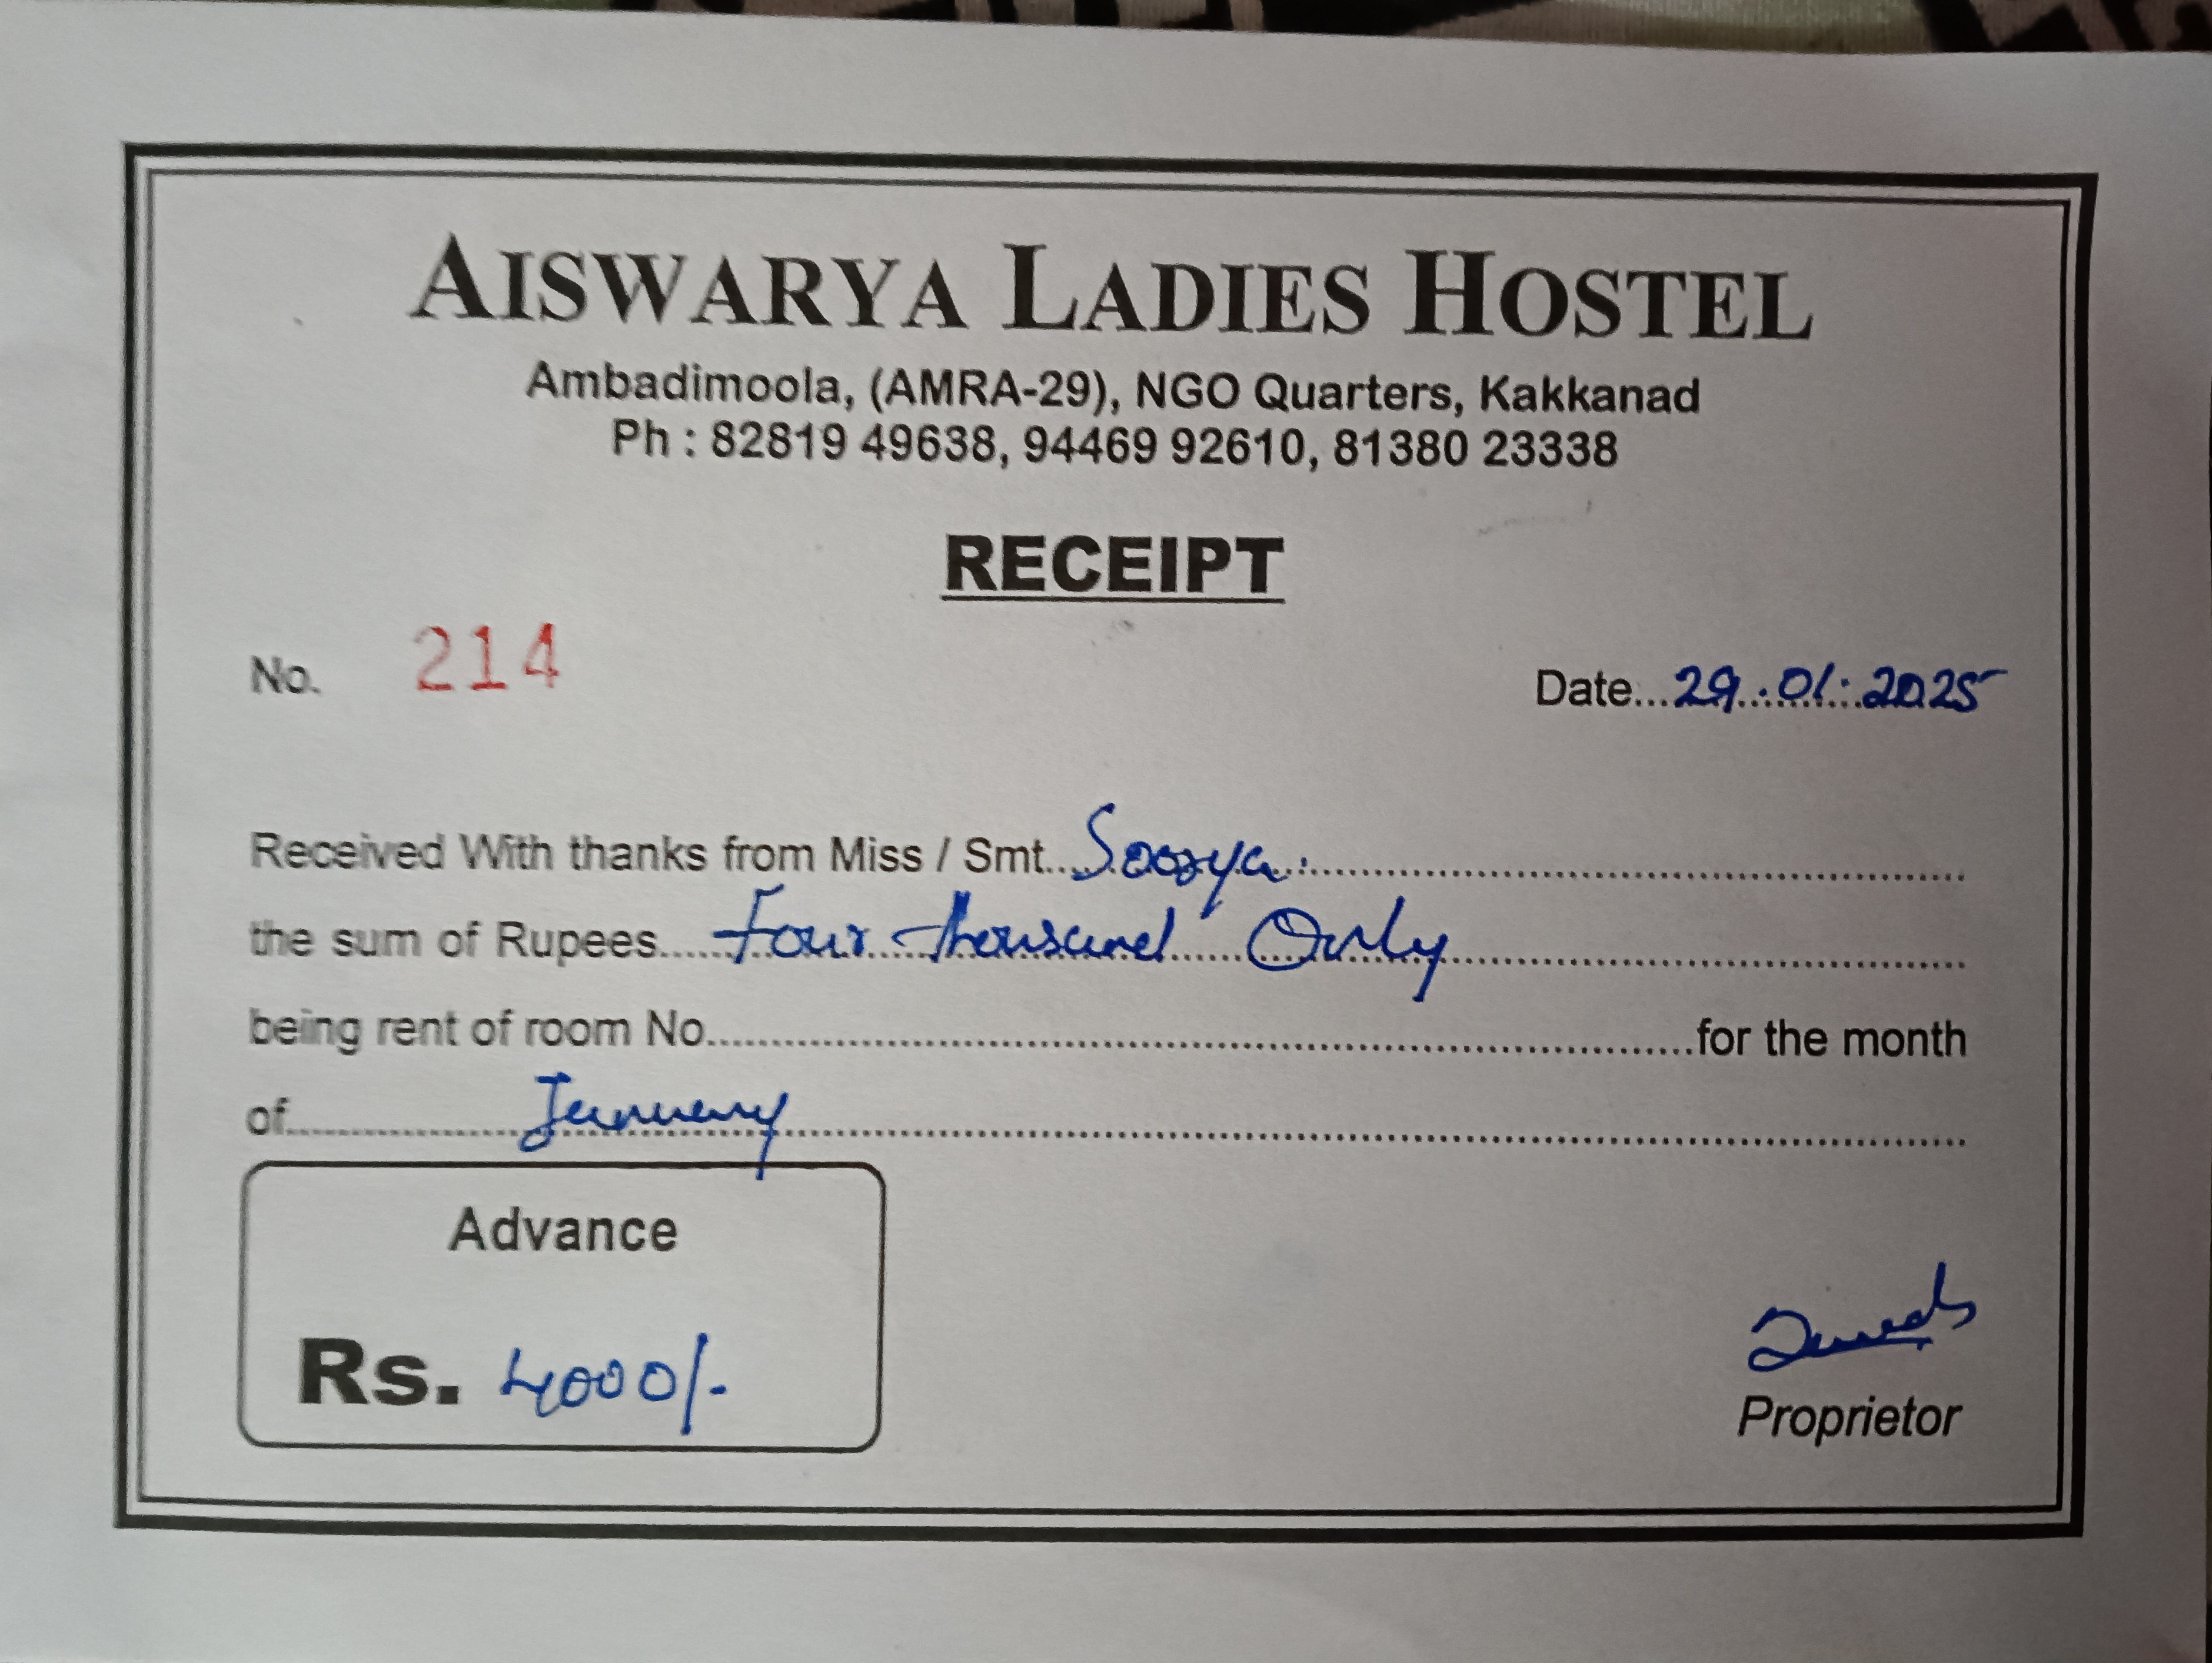 AISWARYA LADIES HOSTEL
Ambadimoola, (AMRA-29), NGO Quarters, Kakkanad
Ph : 82819 49638, 94469 92610, 81380 23338
RECEIPT
No. 214 Date...29..01..2025
Received With thanks from Miss / Smt....Soorya
the sum of Rupees.....Four thousand Only
being rent of room No..........for the month
of..........January
Advance
Rs. 4000/-
Proprietor